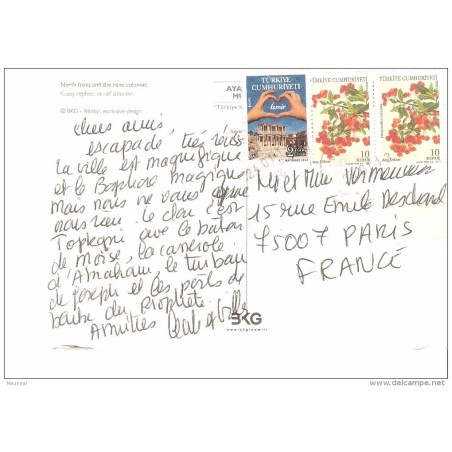 North front and the nave column.
Kuzey cephesi ve nef sütunları.
© BKG - All our exclusive design.
AYA
TÜRKİYE
CUMHURİYETİ
İzmir
TÜRKİYE CUMHURİYETİ
10
KURUŞ
TÜRKİYE CUMHURİYETİ
10
KURUŞ
chers amis,
escapade, très réussie
La ville est magnifique
et le Bosphore magique
mais nous ne vous
nous rien. Le clou c'est
Topkapi avec le baton
de moïse, la casserole
d'Abraham, le turban
de Joseph et les poils de
barbe du Prophète.
Amitiés
Mr et Mme Vermeersch
15 rue Emile Deschanel
75007 PARIS
FRANCE
BKG
www.bkg.com.tr
Neuneel
delcampe.net